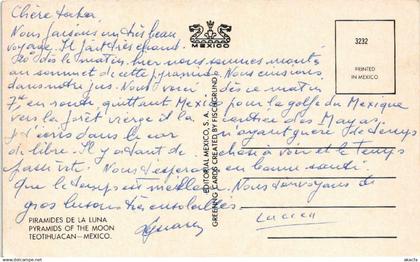 Chère
Nous faisons un très beau
voyage. Il fait très chaud.
dès le matin, hier nous sommes montés
au sommet de cette pyramide. Nous cuisions
dans notre jus. Nous voici dès ce matin
7h en route, quittant Mexico pour le golfe du Mexique
vers la forêt vierge et la des Mayas.
dans le car n'ayant guère de temps
de libre. Il y a tant de choses à voir et le temps
passe vite. Nous en bonne santé.
Que le temps est meilleur. Nous envoyons de
gros bisous très ensoleillés
Lucien
MEXICO
3232
PRINTED
IN MEXICO
EDITORIAL MEXICO, S. A.
GREETING CARDS CREATED BY FISCHGRUND
PIRAMIDES DE LA LUNA
PYRAMIDS OF THE MOON
TEOTIHUACAN—MEXICO.
delcampe.net